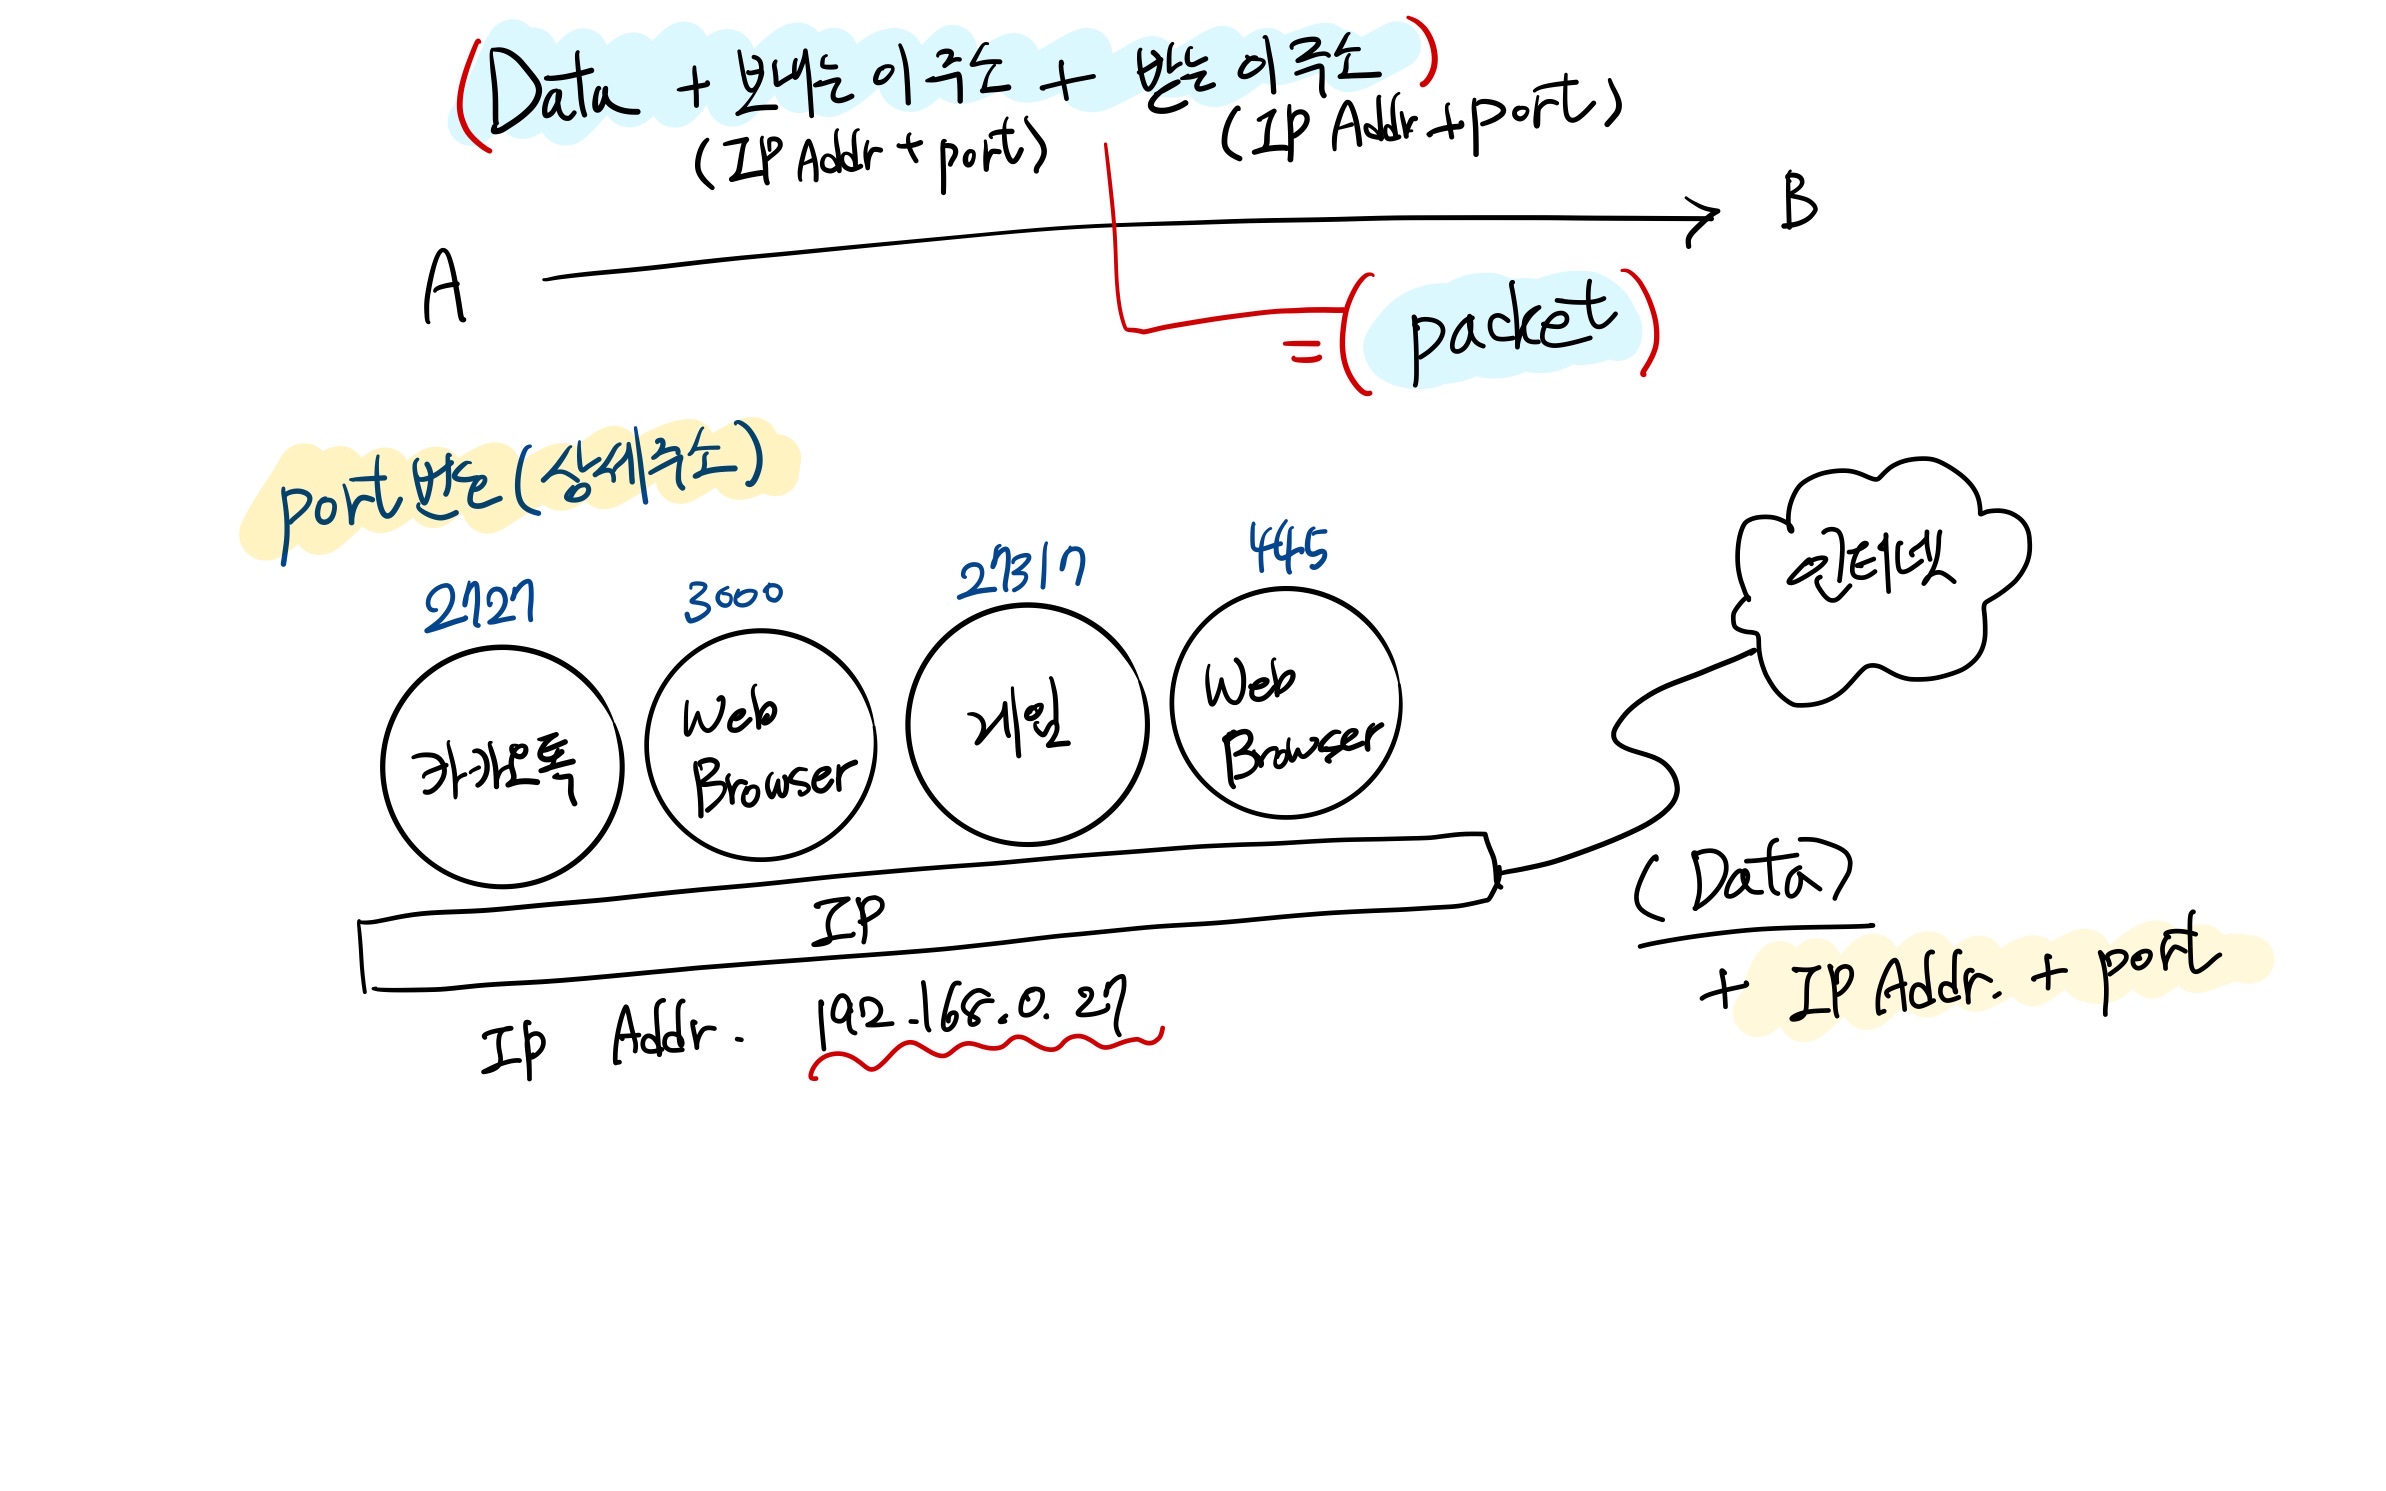 (Data + 보낸이주소 + 받는이주소)
(IP Addr + port)
(Ip Addr + port)
A
B
= (packet)
port 번호 (상세주소)
2727
3000
27317
445
인터넷
카카오톡
Web
Browser
게임
Web
Browser
IP
(Data)
+ IP Addr. + port
Ip Addr. 192.168.0.27